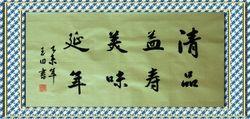 清品
益寿
美味
延年
乙未年
玉田書